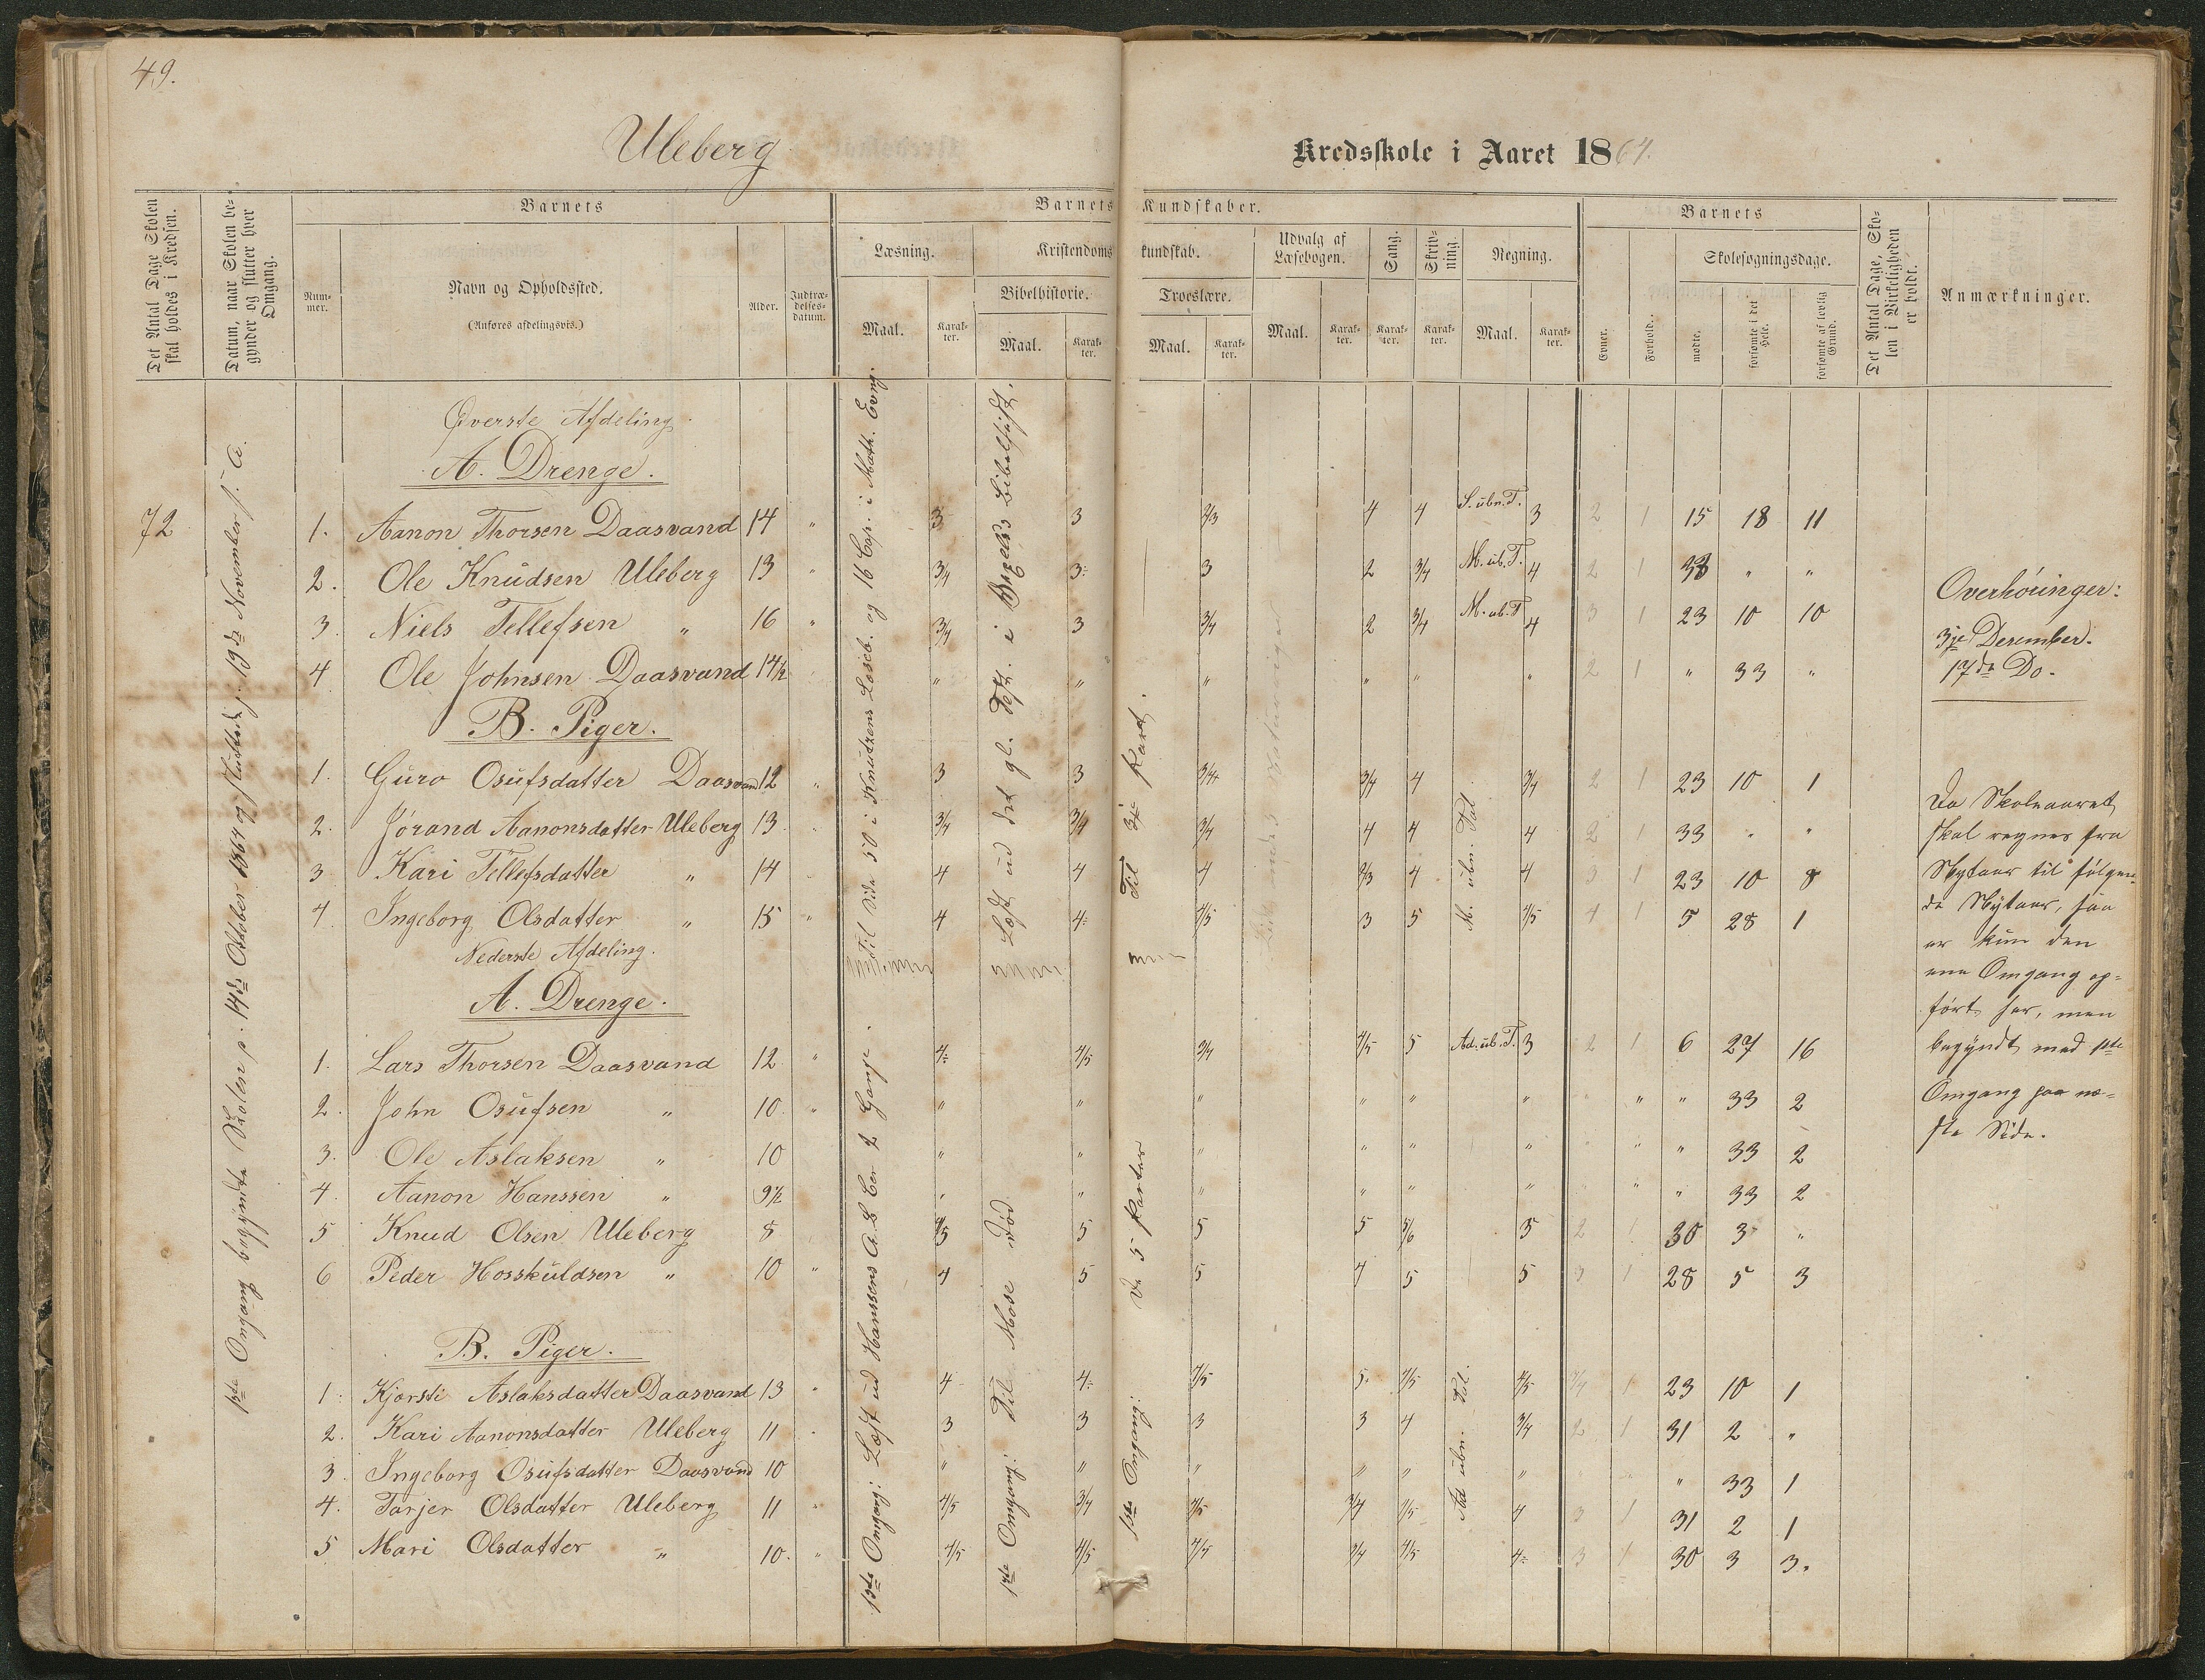 49.
Uleberg
Kredsskole i Aaret 1864.
Det Antal Dage Skolen skal holdes i Kredsen.
Datum, naar Skolen begynder og slutter hver Omgang.
Barnets
Barnets Kundskaber.
Barnets
Det Antal Dage, Skolen i Virkeligheden er holdt.
Anmærkninger.
Nummer.
Navn og Opholdssted.
(Anføres afdelingsvis.)
Alder.
Indtrædelsesdatum.
Læsning.
Kristendomskundskab.
Udvalg af Læsebogen.
Sang.
Skrivning.
Regning.
Evner.
Forhold.
Skolesøgningsdage.
Bibelhistorie.
Troeslære.
Maal.
Karakter.
Maal.
Karakter.
Maal.
Karakter.
Maal.
Karakter.
Karakter.
Karakter.
Maal.
Karakter.
mødte.
forsømte i det Hele.
forsømte af lovlig Grund.
72
1ste Omgang begyndte Skolen p. 14de October 1864 og sluttede p. 19de November s. A.
Øverste Afdeling.
A. Drenge.
1. Aanon Thorsen Daasvand 14 " 3 3 2/3 4 4 S. ubn. T. 3 2 1 15 18 11
2. Ole Knudsen Uleberg 13 " 3/4 3- 3 2 3/4 M. ub. T. 4 2 1 33 " "
3. Niels Tellefsen " 16 " 3/4 3 3/4 2 3/4 M. ub. T 4 3 1 23 10 10
4. Ole Johnsen Daasvand 14½ " " " " " " " 2 1 " 33 "
B. Piger.
1. Guro Osufsdatter Daasvand 12 " 3 3 3/4 3/4 4 3/4 2 1 23 10 1
2. Jórand Aanonsdatter Uleberg 13 " 3/4 3/4 3/4 4 4 4 2 1 33 " "
3 Kari Tellefsdatter " 14 " 4 4 4 2/3 4 4 3 1 23 10 8
4. Ingeborg Olsdatter " 15 " 4 4- 4/5 3 5 4/5 4 1 5 28 1
Til Side 50 i Knutzens Læseb. og 16 Cap. i Math. Evng.
Læst ud det gl. Test. i Bibelhist.
Til 3die Part.
M. ubn. Tal
Nederste Afdeling.
A. Drenge.
1. Lars Thorsen Daasvand 12 " 4- 4/5 3/4 4/5 5 Ad. ub. T. 3 2 1 6 27 16
2. John Osufsen " 10. " " " " " " " " " " 33 2
3. Ole Aslaksen " 10 " " " " " " " " " 33 2
4. Aanon Hanssen " 9½ " " " " " " " " " 33 2
5 Knud Olsen Uleberg 8 4/5 5 5 5 5/6 5 2 1 30 3 "
6 Peder Hosskuldsen " 10 " 4 5 5 4 5 5 3 1 28 5 3
B. Piger.
1. Kjorsti Aslaksdatter Daasvand 13 " 4 4- 4/5 5. 4/5 4/5 3/4 1 23 10 1
2. Kari Aanonsdatter Uleberg 11 " 3 3 3 3 4 3/4 2 1 31 2 "
3. Ingeborg Osufsdatter Daasvand 10 " " " " " " " 33 1
4. Tarjer Olsdatter Uleberg 11 " 4/5 3/4 4/5 3/4 4/5 4 3 1 31 2 1
5 Mari Olsdatter " 10. " 4/5 4/5 4/5 3/4 4/5 4- 3 1 30 3 3.
1ste Omgang: Læst ud Hanssens A. B. Cen 2 Gange.
1ste Omgang: Til Mose Død
1ste Omgang: De 5 Parter
Ad ubn. Tal.
Overhóringer:
3je Desember.
17de Do.
Da Skoleaaret
skal regnes fra
Nytaar til følgen-
de Nytaar, saa
er kun den
ene Omgang op-
ført her, men
begyndt med 1ste
Omgang paa næ-
ste Side.